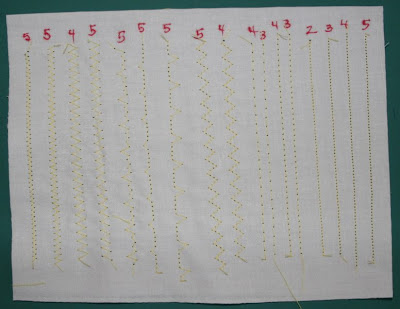 5 5 4 5 5 5 5 5 4 4 3 4 3 2 3 4 5